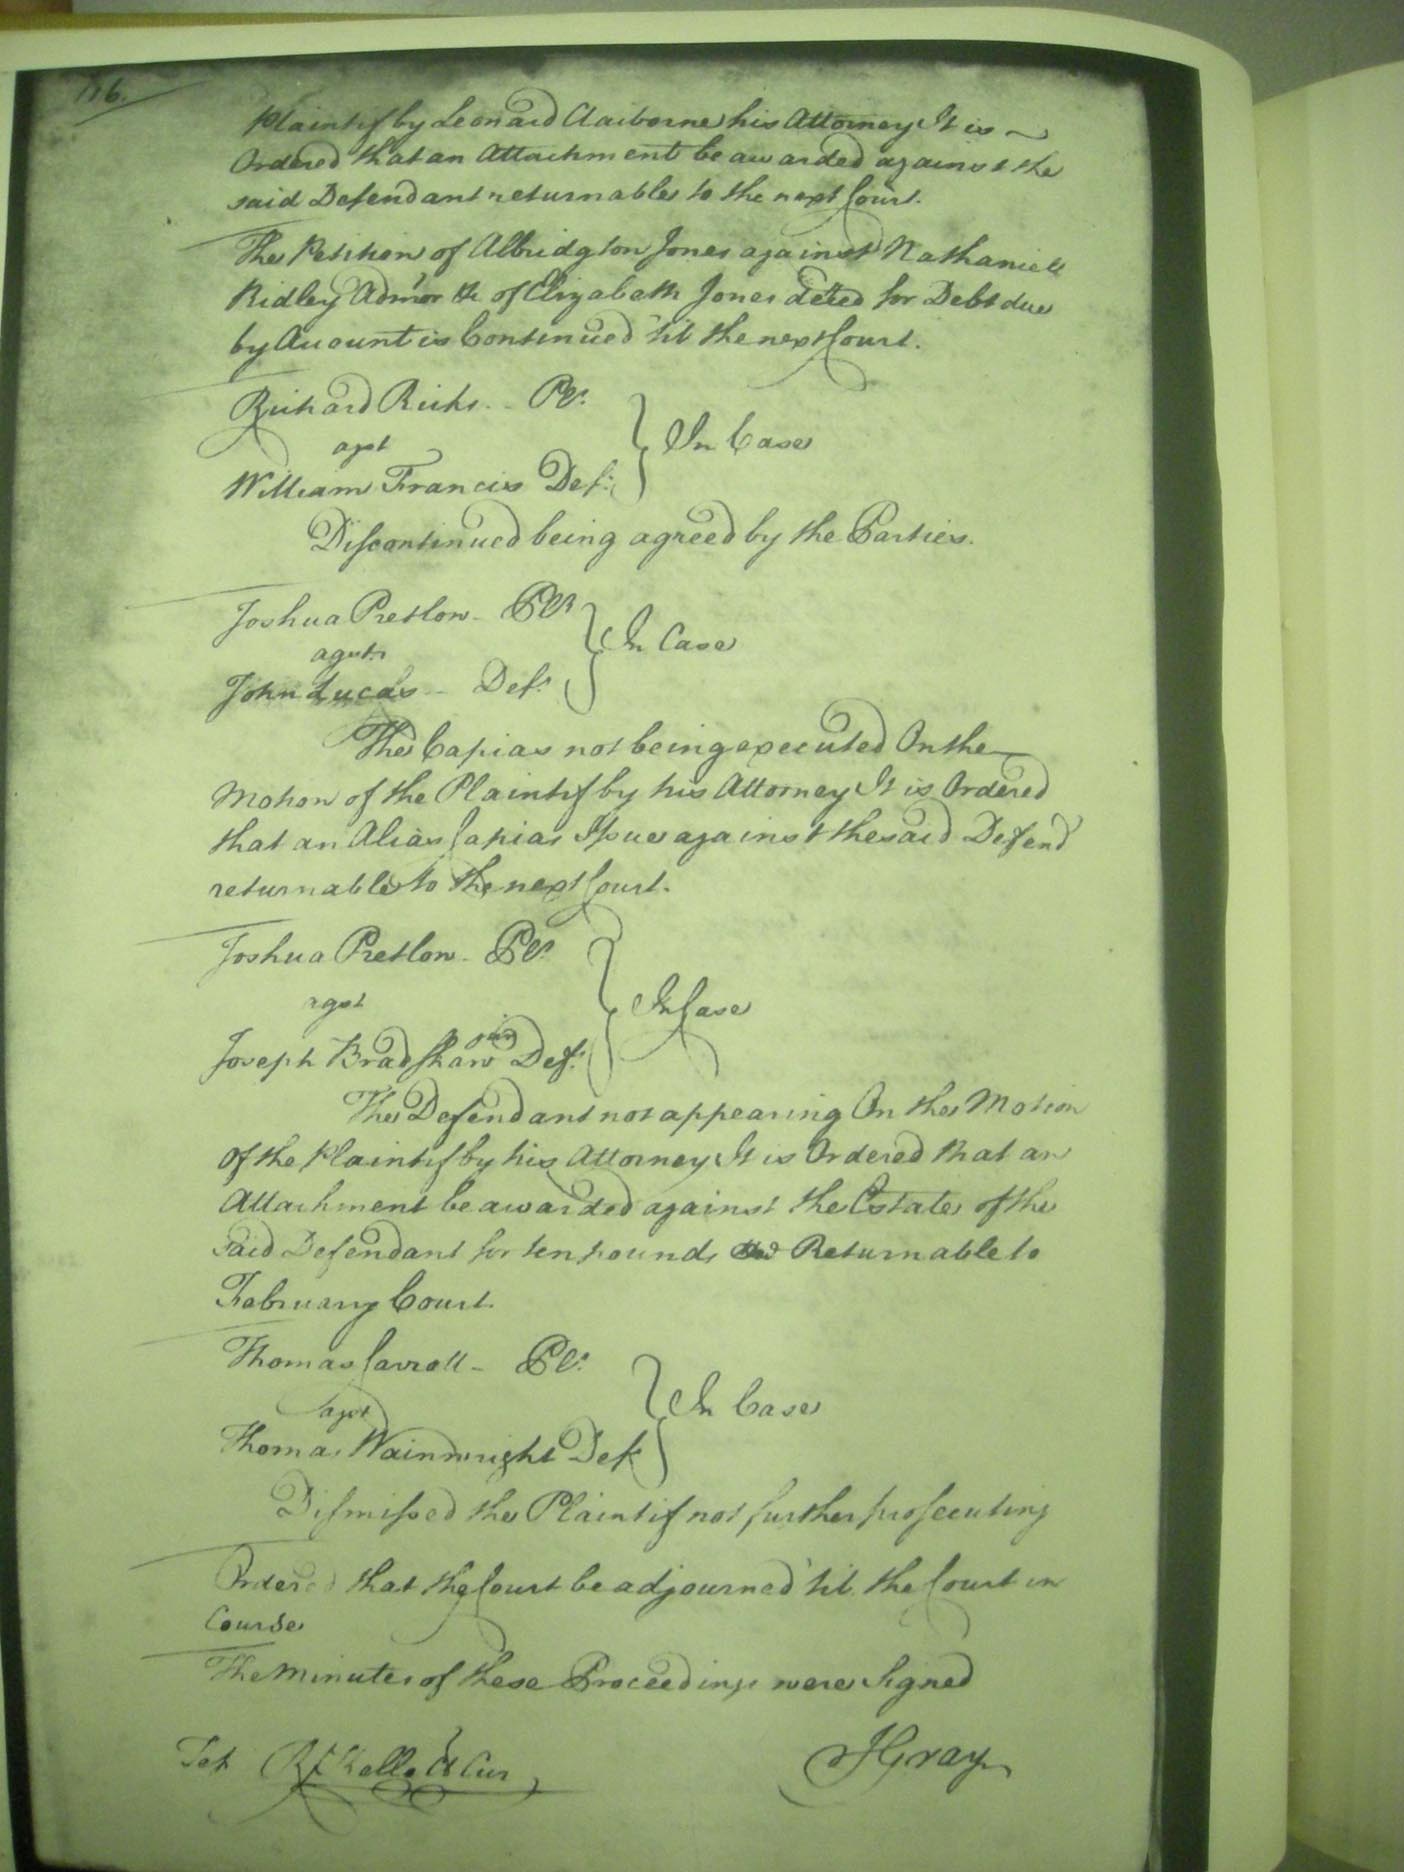 116.
Plaintif by Leonard Claiborne his Attorney It is
Ordered that an Attachment be awarded against the
said Defendant returnable to the next Court.
The Petition of Albridgton Jones against Nathaniell
Ridley Admor &c of Elizabeth Jones deced for Debt due
by Account is Continued 'til the next Court.
Richard Ricks - Plt.
agst
William Francis Def.
In Case
Discontinued being agreed by the Parties.
Joshua Pretlow - Plt
agst
John Lucas - Deft
In Case
The Capias not being executed On the
Motion of the Plaintif by his Attorney It is Ordered
that an Alias Capias Issue against the said Defend
returnable to the next Court.
Joshua Pretlow - Plt
agst
Joseph Bradshaw Def.
In Case
The Defendant not appearing On the Motion
of the Plaintif by his Attorney It is Ordered that an
Attachment be awarded against the Estate of the
said Defendant for ten pounds Returnable to
February Court.
Thomas Carroll - Plt.
agst
Thomas Wainwright Def
In Case
Dismissed the Plaintif not further prosecuting
Ordered that the Court be adjourned 'til the Court in
Course
The Minutes of these Proceedings were Signed
Test R Kello Cl Cur
J Gray